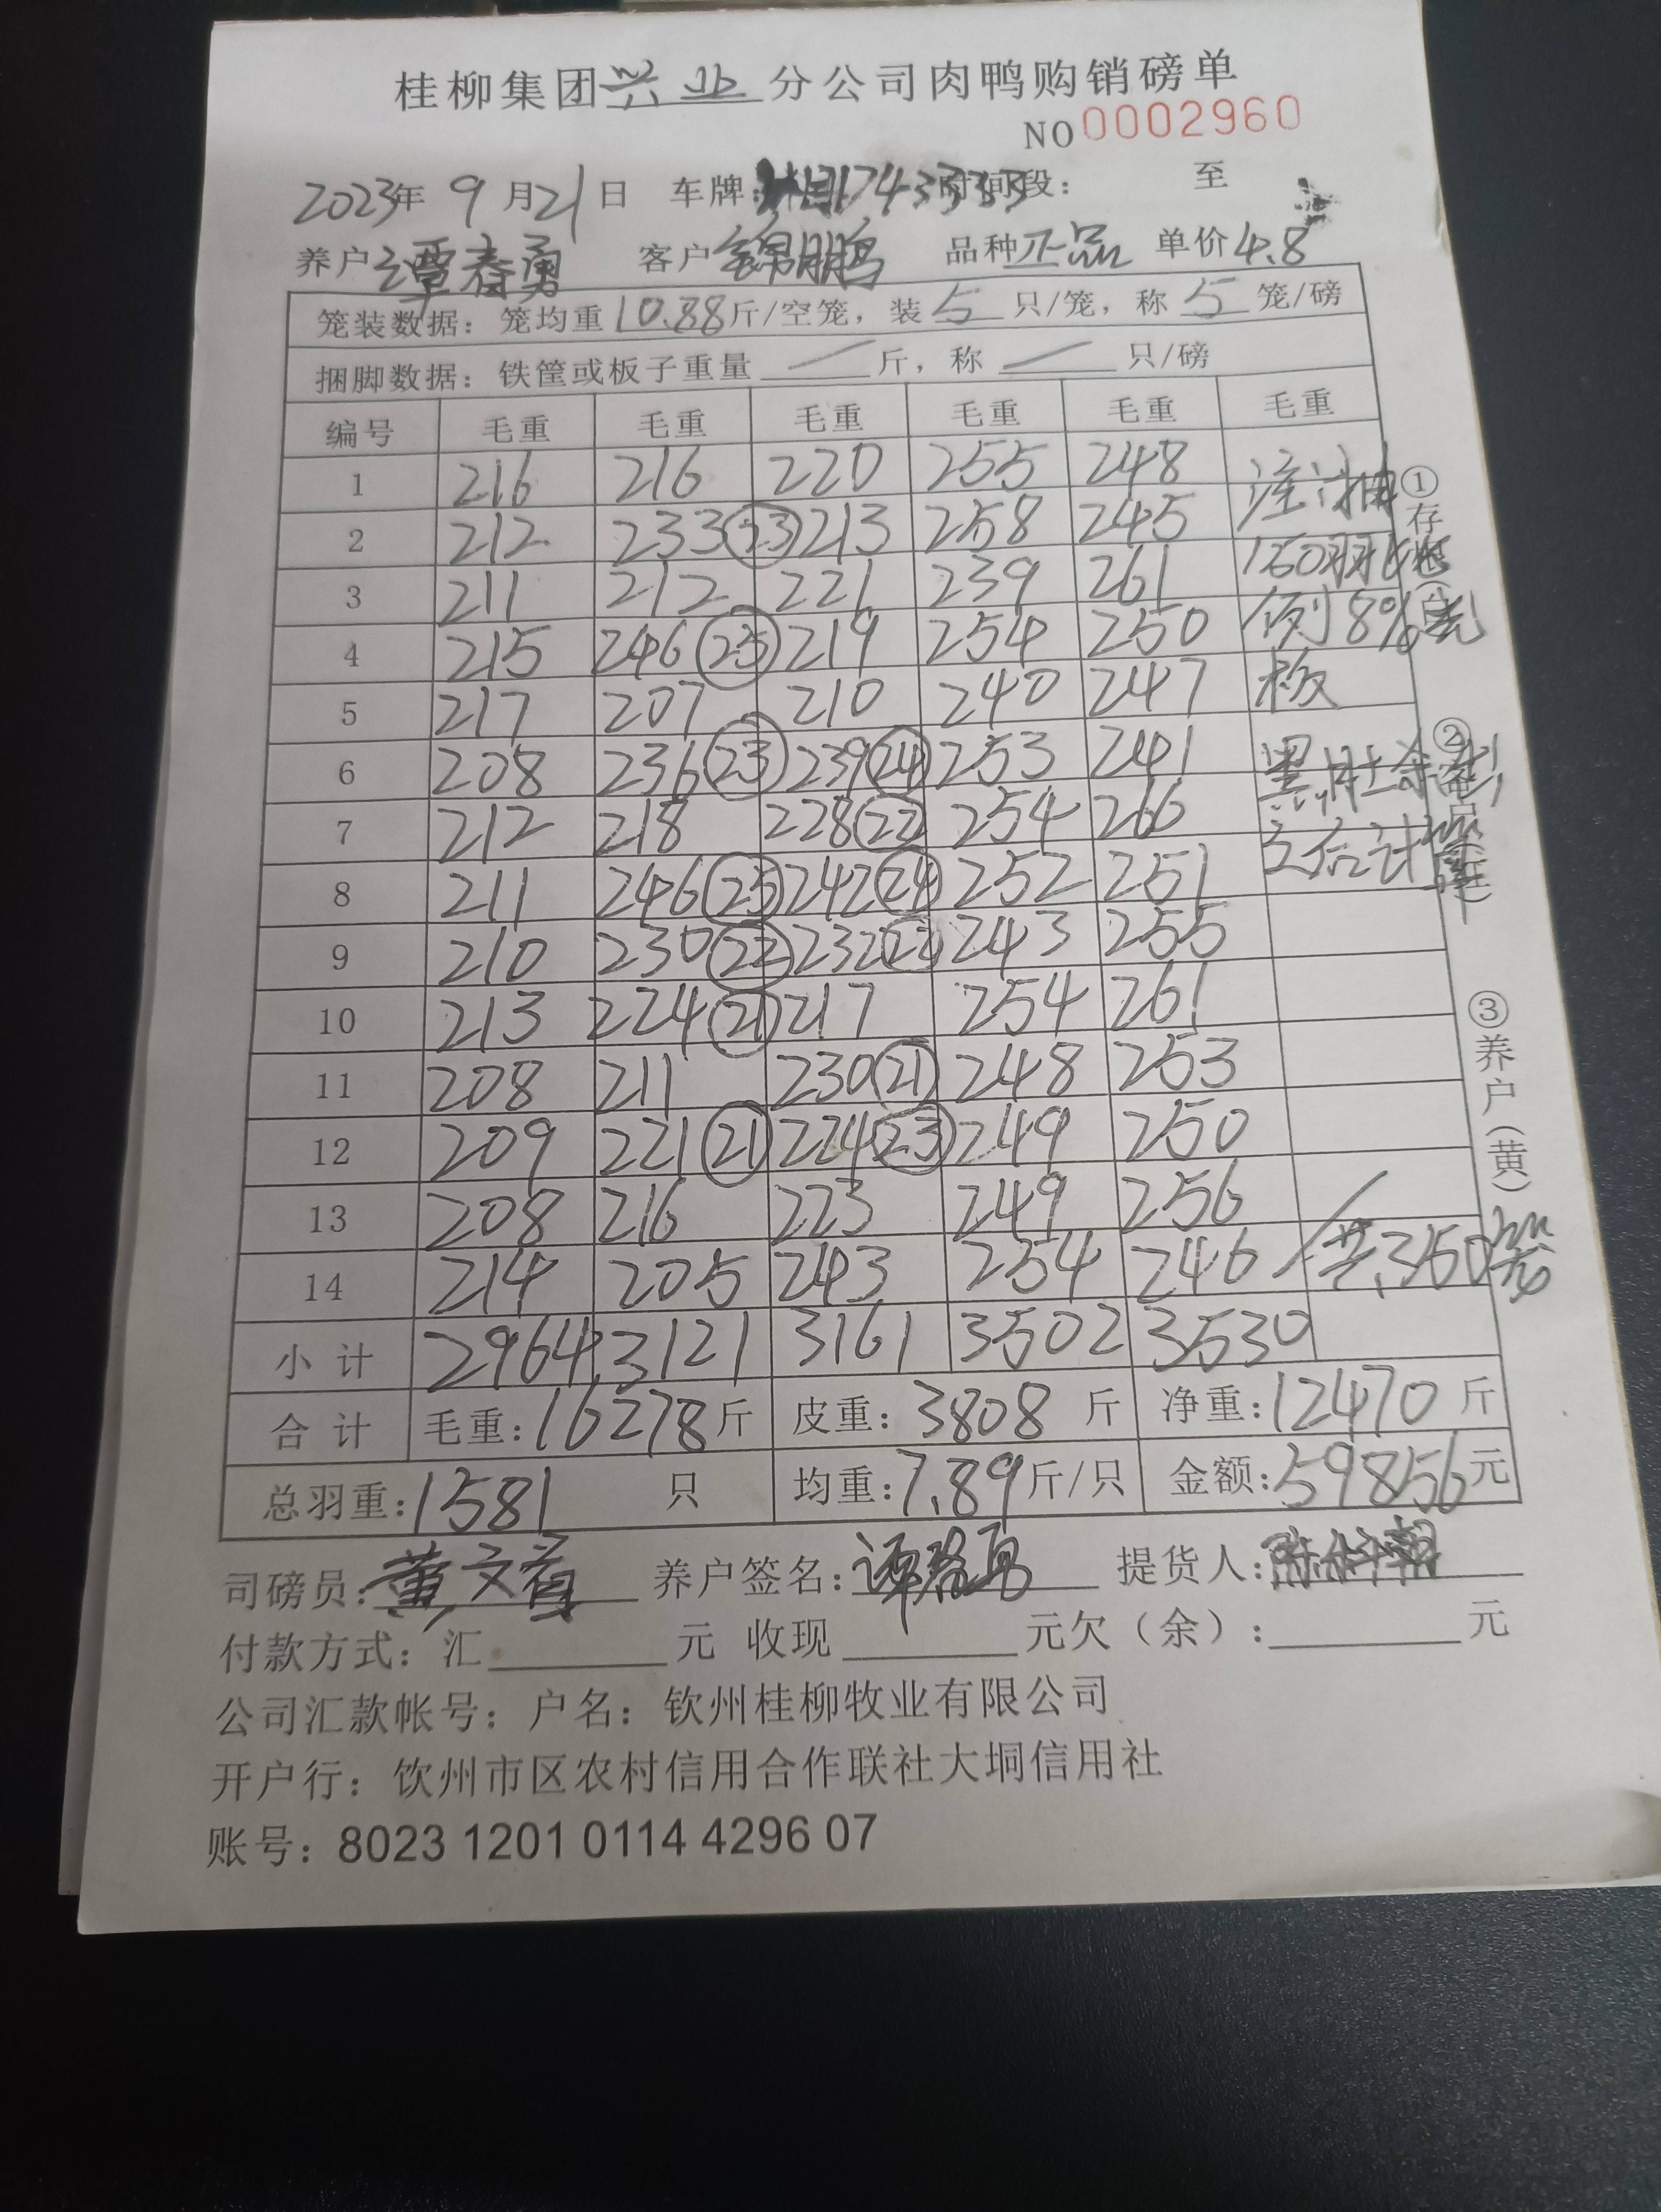 桂柳集团兴业分公司肉鸭购销磅单
NO 0002960
2023年 9月21日 车牌: 时间段: 至
养户 谭春勇 客户 锦鹏 品种 正品 单价 4.8
笼装数据: 笼均重 10.88 斤/空笼, 装 5 只/笼, 称 5 笼/磅
捆脚数据: 铁筐或板子重量 / 斤, 称 / 只/磅
编号 毛重 毛重 毛重 毛重 毛重 毛重
1 216 216 220 255 248
2 212 233 (23) 213 258 245
3 211 212 221 239 261
4 215 246 (25) 219 254 250
5 217 207 210 240 247
6 208 236 (23) 239 (24) 253 241
7 212 218 228 (22) 254 266
8 211 246 (25) 242 (24) 252 251
9 210 230 (22) 232 (22) 243 255
10 213 224 (21) 217 254 261
11 208 211 230 (21) 248 253
12 209 221 (21) 224 (23) 249 250
13 208 216 223 249 256
14 214 205 243 254 246 共350笼
小计 2964 3121 3161 3502 3530
合计 毛重: 16278 斤 皮重: 3808 斤 净重: 12470 斤
总羽重: 1581 只 均重: 7.89 斤/只 金额: 59856 元
①存
②客户
③养户(黄)
司磅员: 黄文 养户签名: 谭春勇 提货人:
付款方式: 汇 元 收现 元欠(余): 元
公司汇款帐号: 户名: 钦州桂柳牧业有限公司
开户行: 饮州市区农村信用合作联社大垌信用社
账号: 8023 1201 0114 4296 07